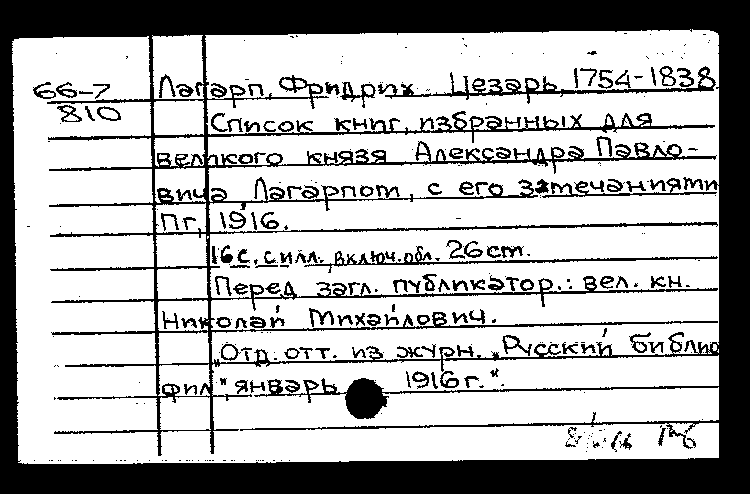 66-7 Лагарп, Фридрих Цезарь, 1754-1838
810
Список книг, избранных для
великого князя Александра Павло-
вича Лагарпом, с его замечаниями
Пг, 1916.
16 с. с илл., включ. обл. 26 cm.
Перед загл. публикатор.: вел. кн.
Николай Михайлович.
„Отд. отт. из журн. „Русский библио
фил", январь 1916 г.".